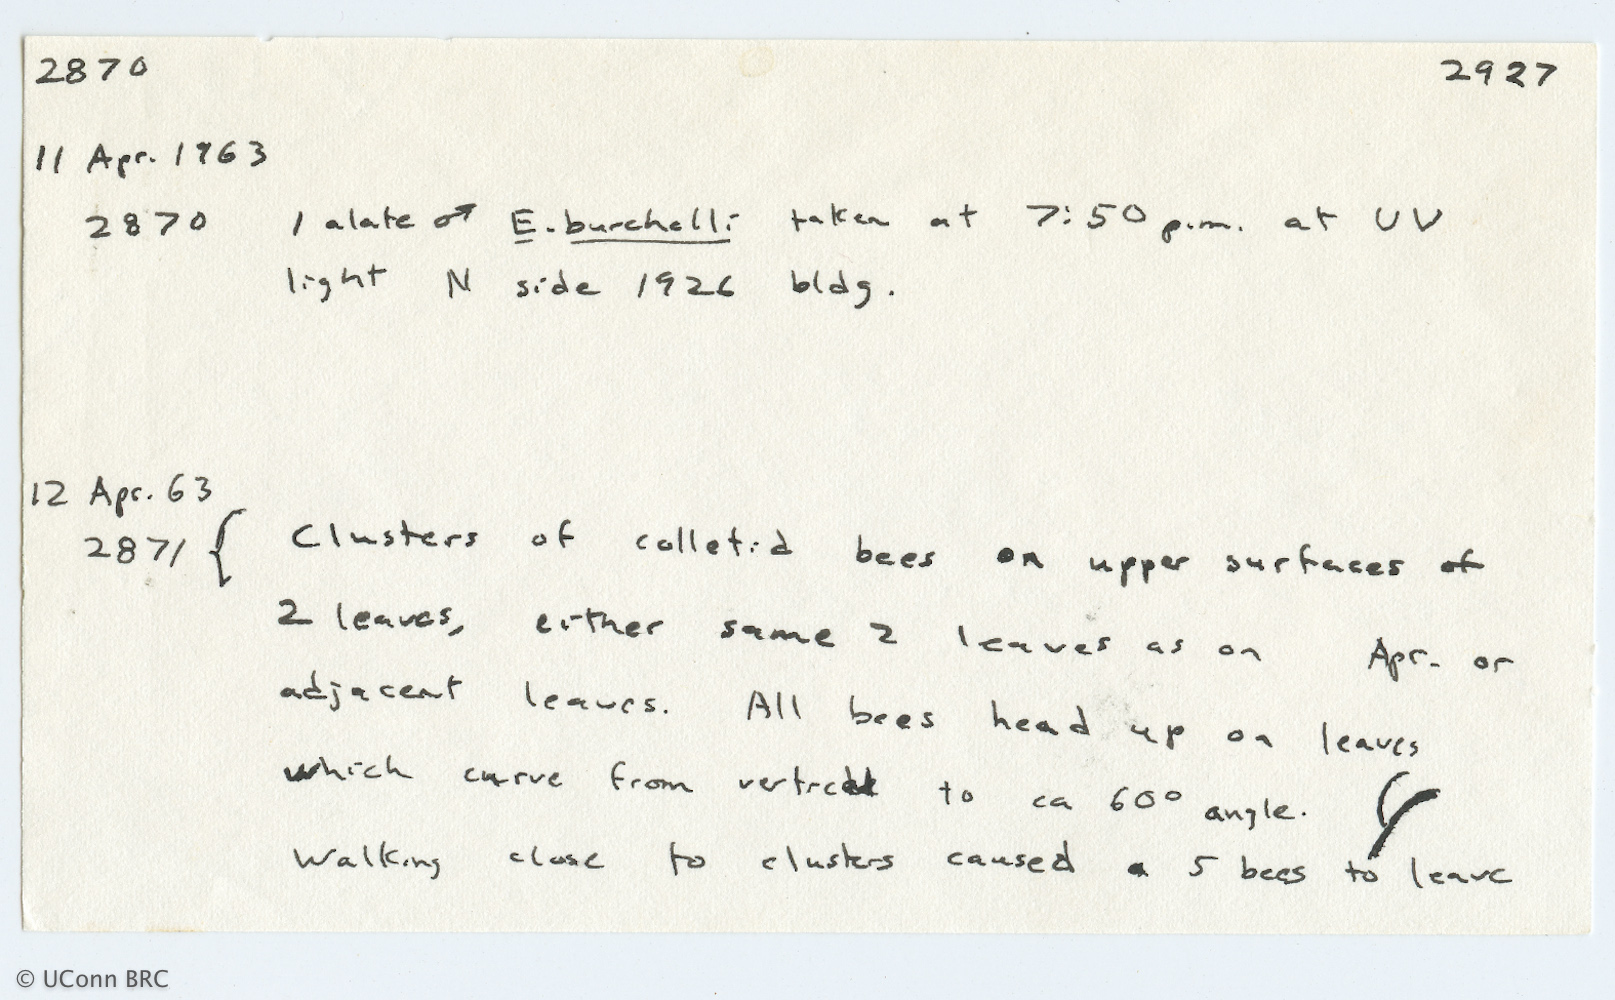 2870 2927
11 Apr. 1963
2870 1 alate ♂ E. burchelli taken at 7:50 p.m. at UV
light N side 1926 bldg.
12 Apr. 63
2871 { Clusters of colletid bees on upper surfaces of
2 leaves, either same 2 leaves as on Apr. or
adjacent leaves. All bees head up on leaves
which curve from vertical to ca 60° angle.
Walking close to clusters caused 5 bees to leave
© UConn BRC